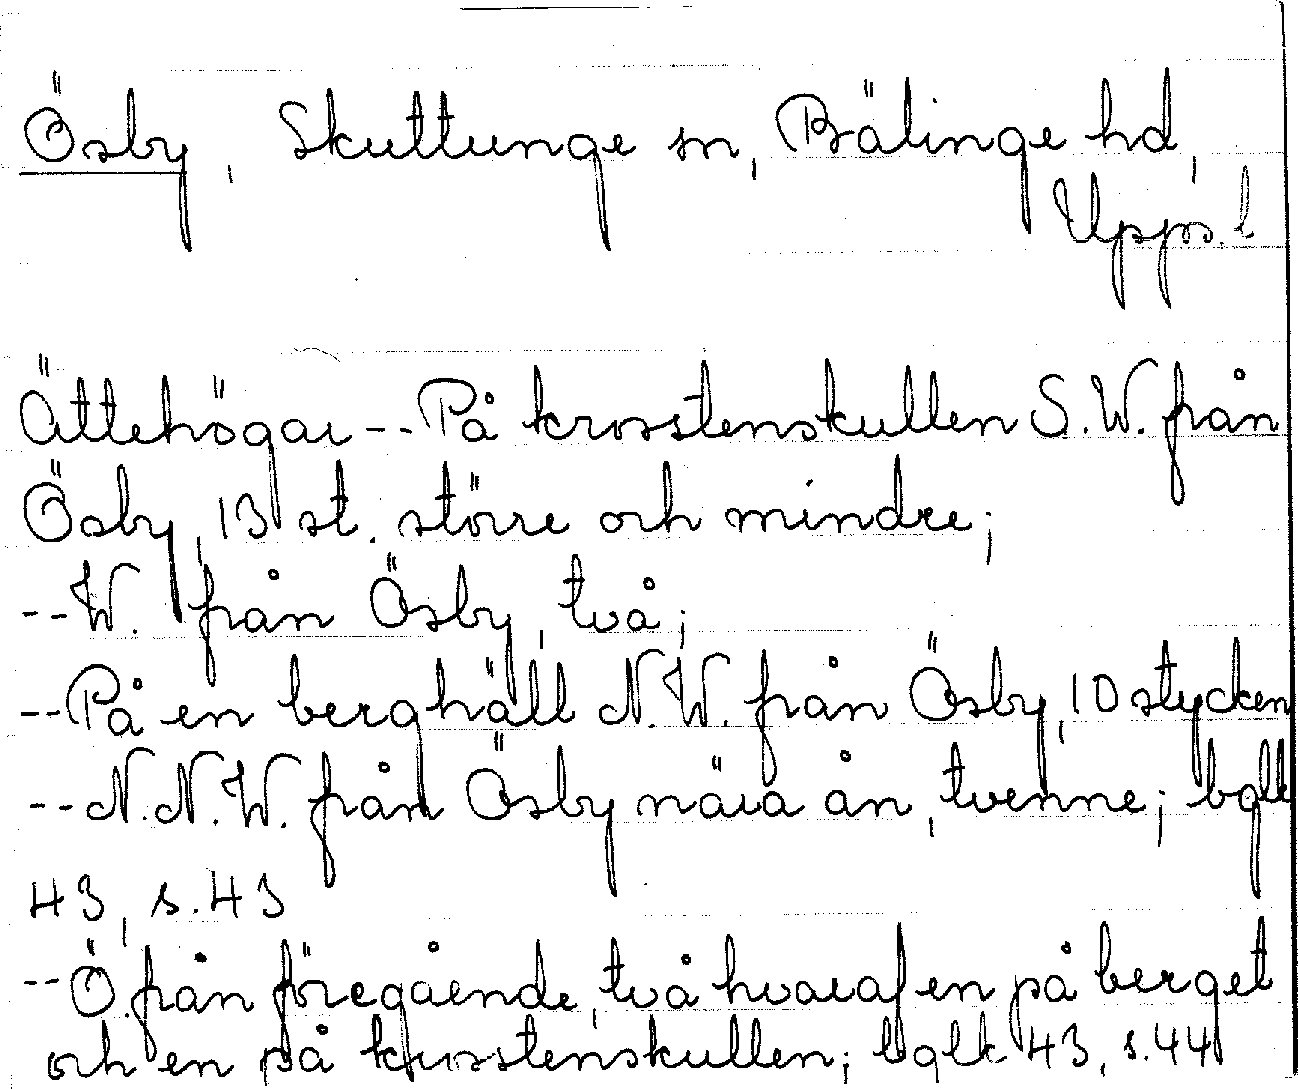 Ösby, Skuttunge sn, Bälinge hd,
Upps. l
Ättehögar -- På krosstenskullen S.W. från
Ösby, 13 st. större och mindre;
-- W. från Ösby, två;
-- På en berghäll N.W. från Ösby, 10 stycken
-- N.N.W. från Ösby nära ån, tvenne; bglk
43, s. 43
-- Ö. från föregående, två hvaraf en på berget
och en på krosstenskullen; bglk 43, s. 44